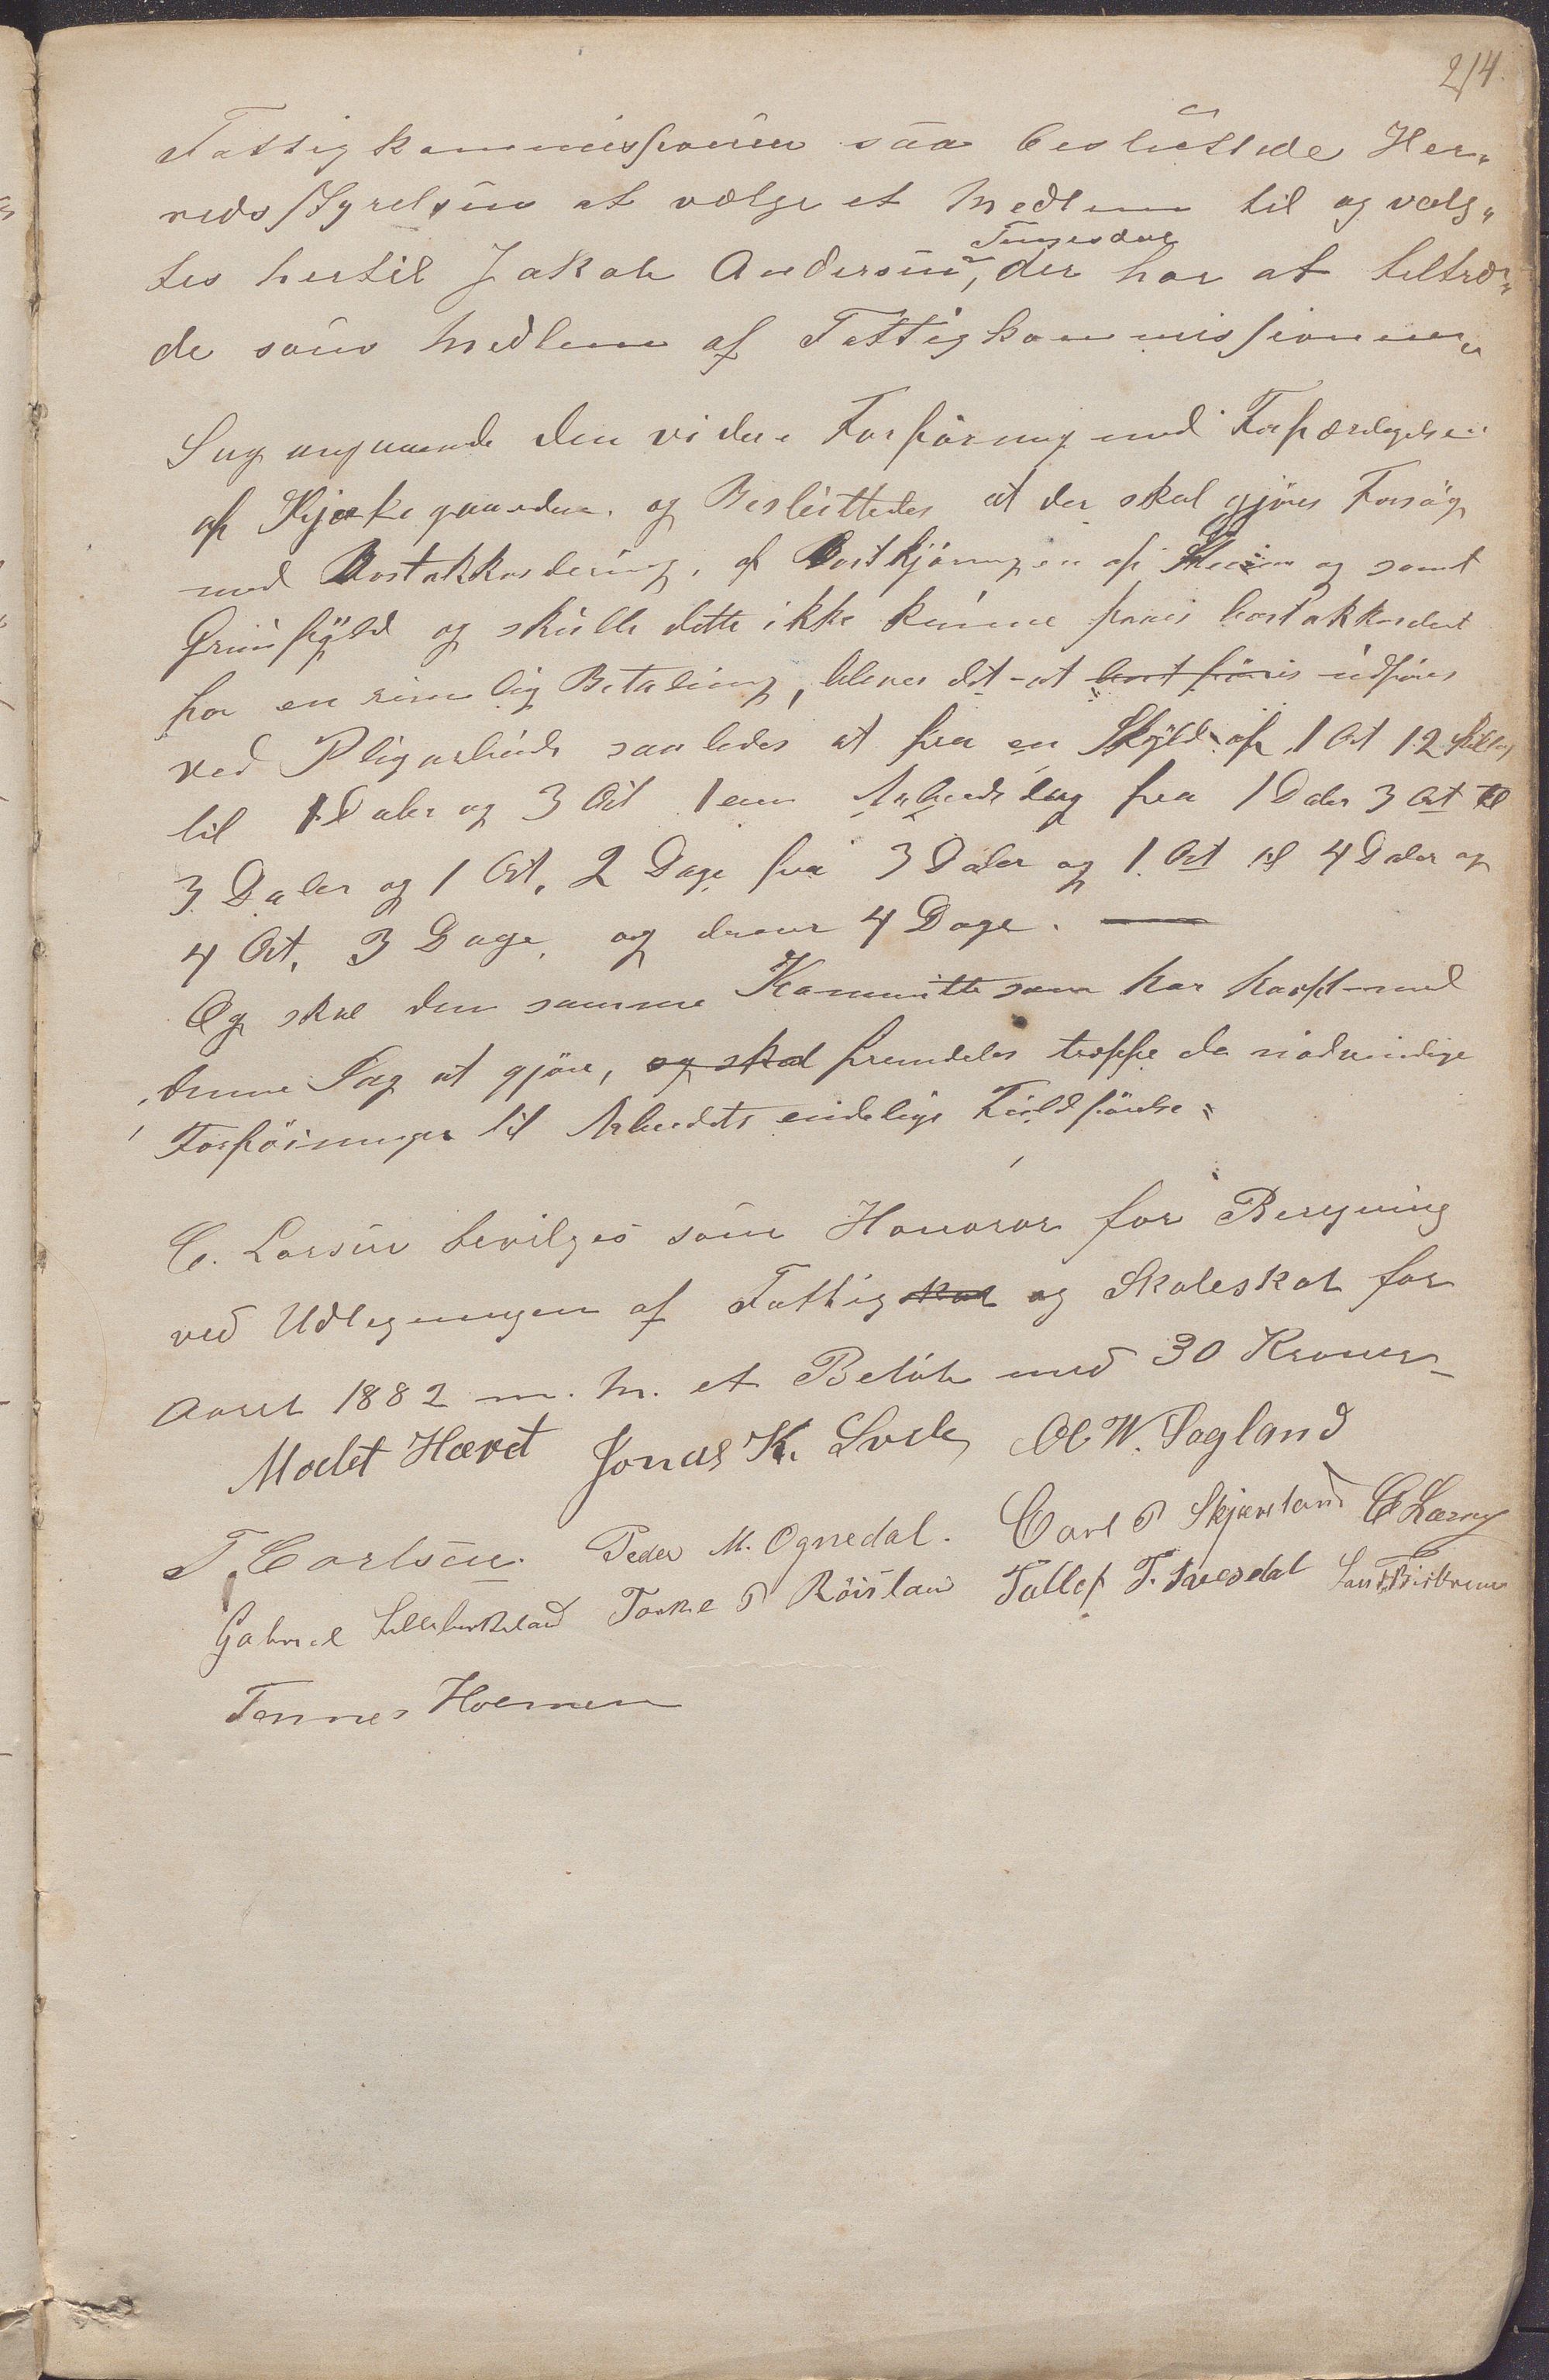 214.
Fattigkommissionen saa besluttede Her„
redsstyrelsen at vælge et Medlem til og valg„
Tengesdal
tes hertil Jakob Andersen, der har at tiltræ„
de som Medlem af Fattigkommissionen„
Sag angaaende den videre Forføining med Forfærdigelsen
af Kjerkegaarden. og Besluttedes at der skal gjöres Forsög
med Bortakkordering, af Bortkjöringen af Steen og samt
Grunfyld og skulle dette ikke kunne faaes bortakkordert
for en rimelig Betaling, bliver det at bortföres udföres
ved Pligarbeide saaledes at fra en Skyld af 1 Ort 12 skilling
til 1 Daler og 3 Ort 1 en Arbeidsdag fra 1 Daler 3 Ort til
3 Daler og 1 Ort, 2 Dage fra 3 Daler og 1 Ort til 4 Daler og
4 Ort, 3 Dage, og derover 4 Dage. —
Og skal den samme Kommitte som har havft med
denne Sag at gjöre, og skal fremdeles træffe de nödvendige
Forföininger til Arbeidets endelige Fuldförelse„
C. Larsen bevilges som Honorar for Beregning
ved Udlegningen af Fattigskat og Skoleskat for
Aaret 1882 m. M. et Belöb med 30 Kroner
Modet Havet Jonas K. Ol W. Sagland
T. Carlsen. Peder M. Ognedal. Carl P Skjæveland
Gabriel Torkel P Röislan Tollef T.
Tonnes